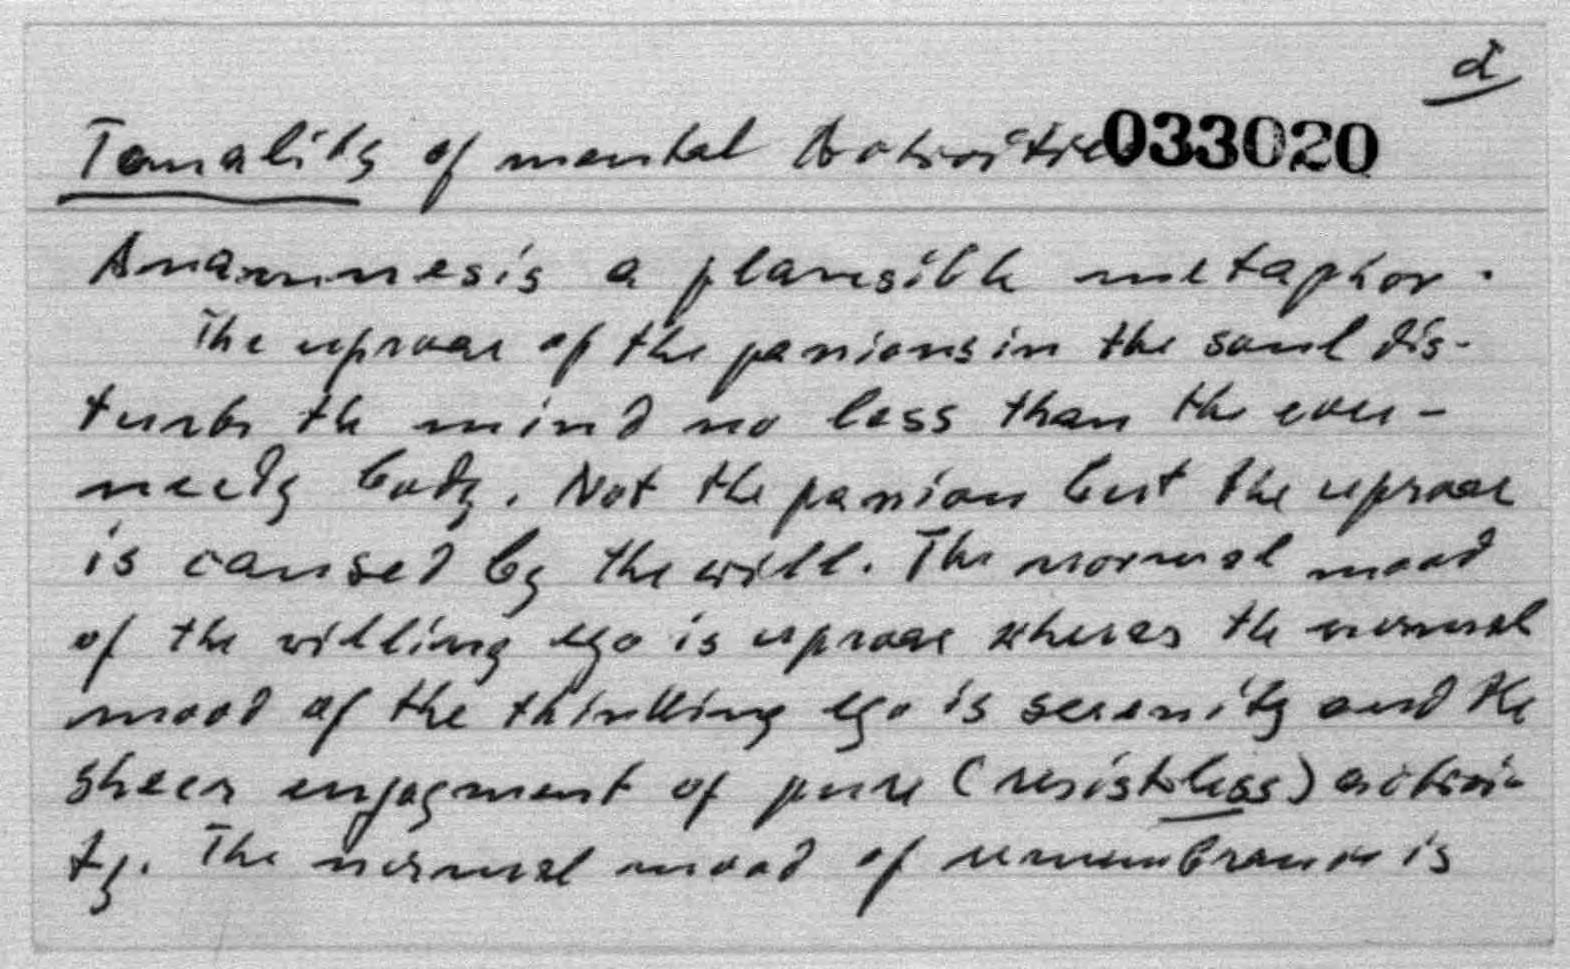 d
Tonality of mental Activities 033020
Anamnesis a plausible metaphor.
The uproar of the passions in the soul dis-
turbs the mind no less than the ever-
needy body. Not the passion but the uproar
is caused by the will. The normal mood
of the willing ego is uproar wheras the normal
mood of the thinking ego is serenity and the
sheer engagment of pure (resistless) activi-
ty. The normal mood of remembrance is